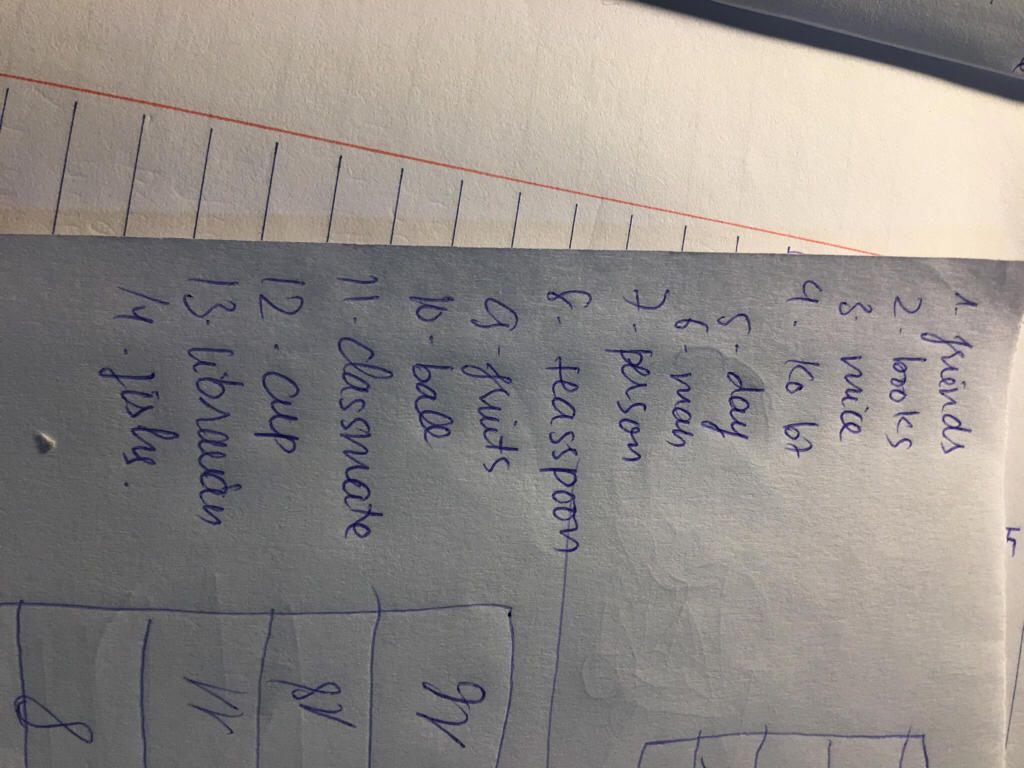 1. friends
2. books
3. mice
4. ko bt
5. day
6. man
7. person
8. teasspoon
9. fruits
10. ball
11. classmate
12. cup
13. librarian
14. fish.
9V
8V
8